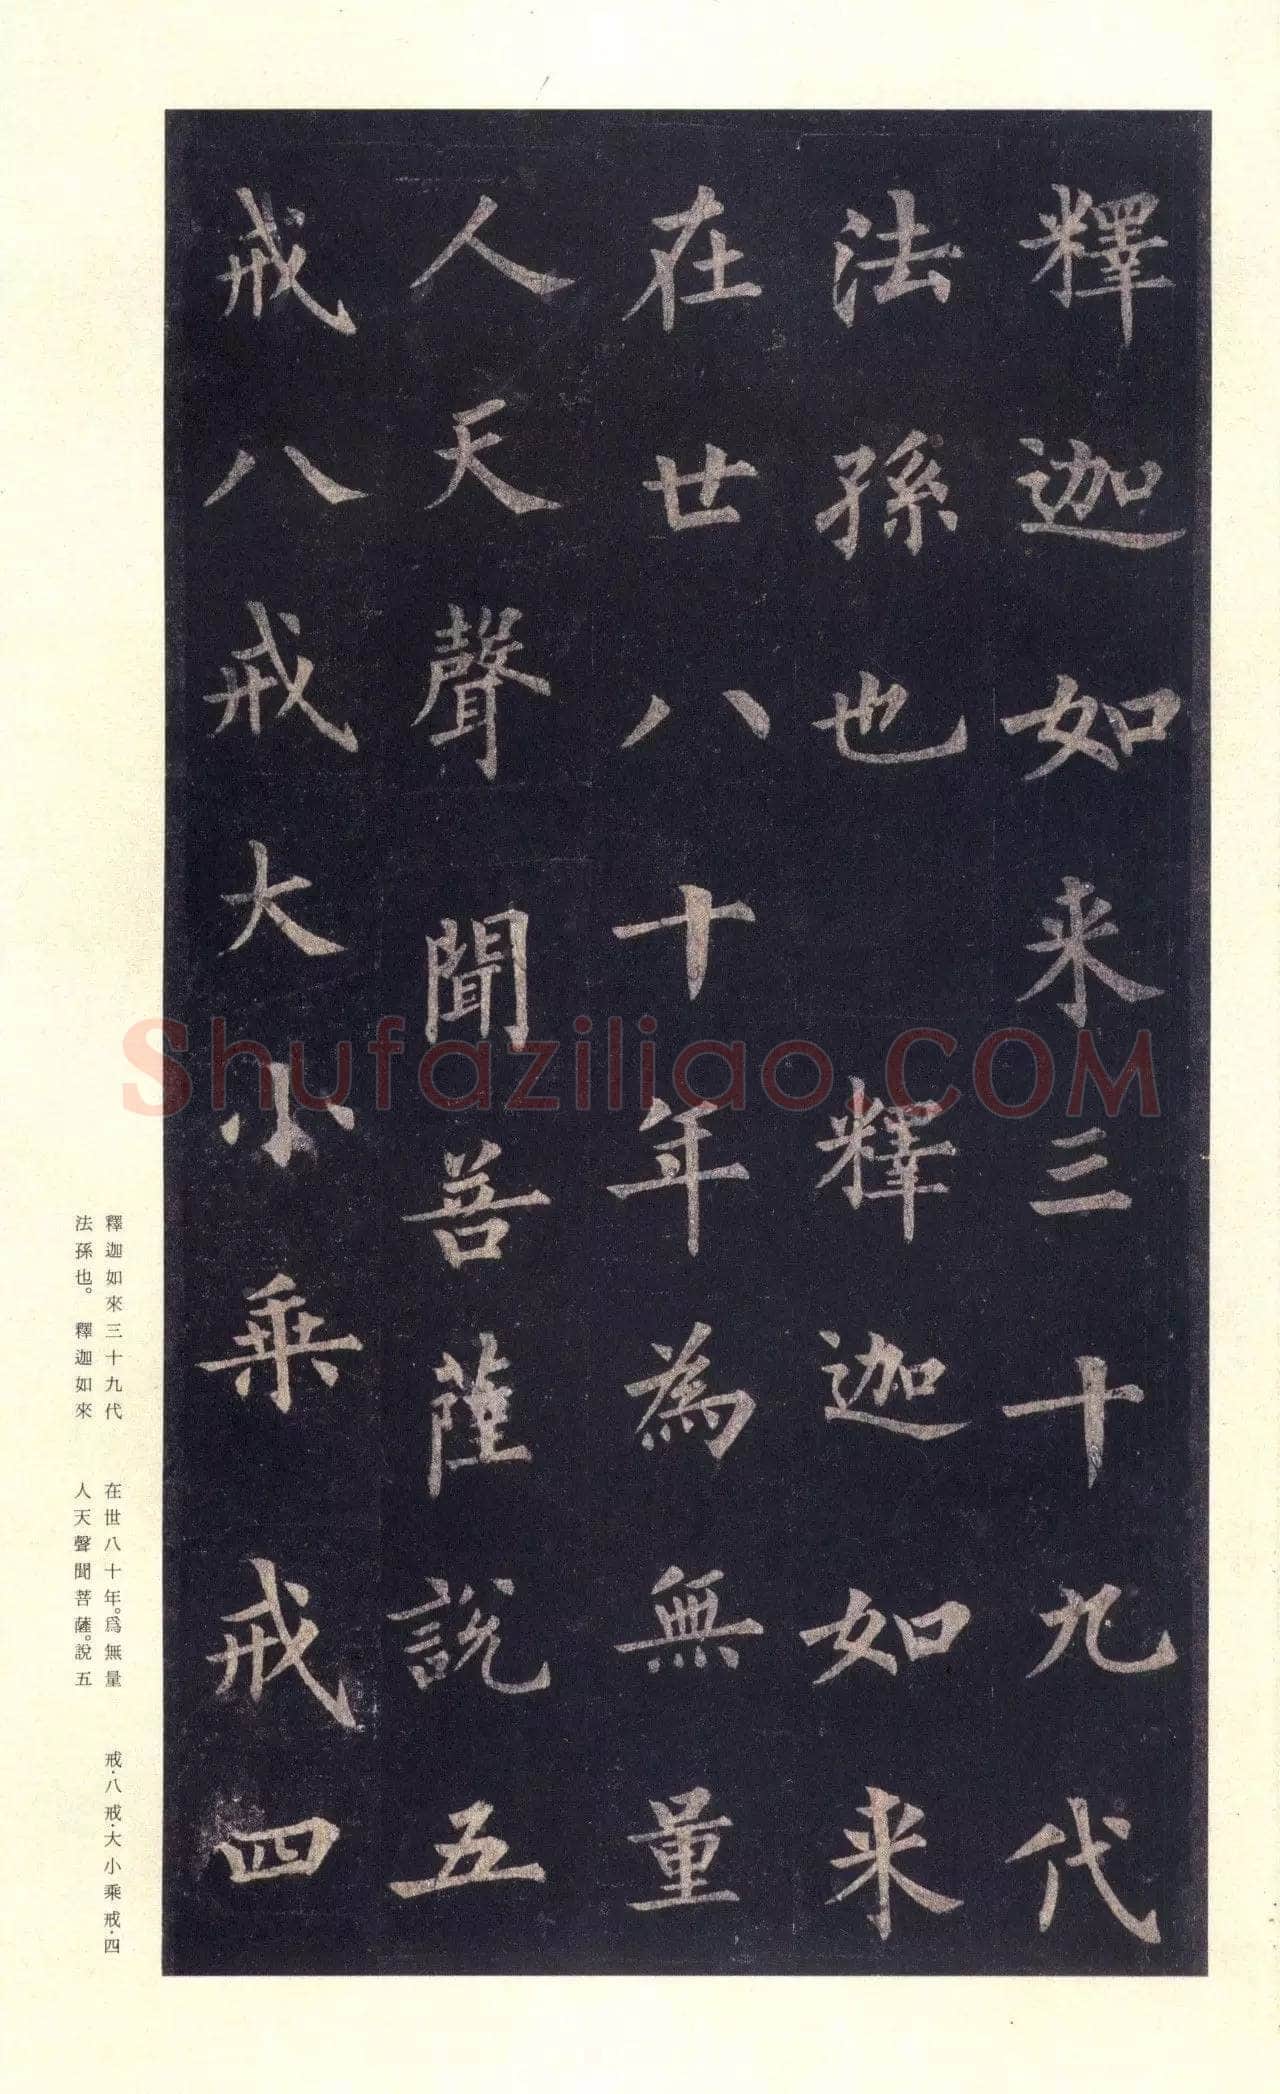 釋迦如来三十九代
法孫也釋迦如来
在世八十年為無量
人天聲聞菩薩說五
戒八戒大小乘戒四
Shufaziliao.COM
釋迦如來三十九代
法孫也。釋迦如來
在世八十年。爲無量
人天聲聞菩薩。說五
戒·八戒·大小乘戒·四